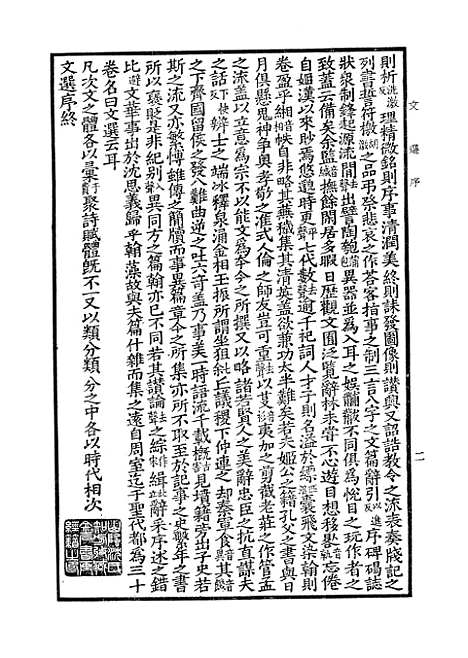 文選序
二
則析理精微銘則序事清潤美終則誄發圖像則讚興又詔誥教令之流表奏牋記之
列書誓符檄之品弔祭悲哀之作答客指事之制三言八字之文篇辭引序碑碣誌
狀衆制鋒起源流間出譬陶匏異器並為入耳之娛黼黻不同俱為悅目之玩作者之
致蓋云備矣余監撫餘閑居多暇日歷觀文囿泛覽辭林未嘗不心遊目想移晷忘倦
自姬漢以來眇焉悠邈時更七代數逾千祀詞人才子則名溢於縹囊飛文染翰則
卷盈乎緗帙自非略其蕪穢集其清英蓋欲兼功太半難矣若夫姬公之籍孔父之書與日
月俱懸鬼神爭奧孝敬之准式人倫之師友豈可重以芟夷加之剪截老莊之作管孟
之流蓋以立意為宗不以能文為本今之所撰又以略諸若賢人之美辭忠臣之抗直謀夫
之話辨士之端冰釋泉涌金相玉振所謂坐狙丘議稷下仲連之却秦軍食其
之下齊國留侯之發八難曲逆之吐六奇蓋乃事美一時語流千載概見墳籍旁出子史若
斯之流又亦繁博雖傳之簡牘而事異篇章今之所集亦所不取至於記事之史繫年之書
所以褒貶是非紀別異同方之篇翰亦已不同若其讚論之綜緝辭采序述之錯
比文華事出於沈思義歸乎翰藻故與夫篇什雜而集之遠自周室迄于聖代都為三十
卷名曰文選云耳
凡次文之體各以彙聚詩賦體既不一又以類分類分之中各以時代相次
文選序終